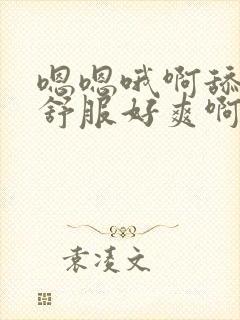 嗯嗯哦啊舔
舒服好爽啊
袁凌文